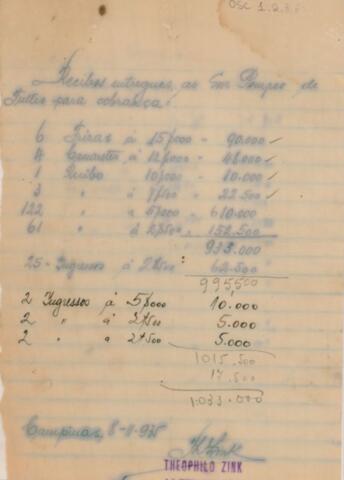 OSC 1.2.8.
Recibos entregues ao Snr Pompeo de
Tullio para cobrança:
6 Frizas á 15$000 - 90.000
4 Camarotes á 12$000 - 48.000
1 Recibo 10$000 - 10.000
3 " á 7$500 - 22.500
122 " á 5$000 - 610.000
61 " á 2$500 - 152.500
933.000
25 - Ingressos á 2$500: 62.500
995,500
2 Ingressos á 5$000 10.000
2 " a 2$500 5.000
2 " a 2$500 5.000
1015.500
17.500
1.033.000
Campinas, 8-11-935
THEOPHILO ZINK